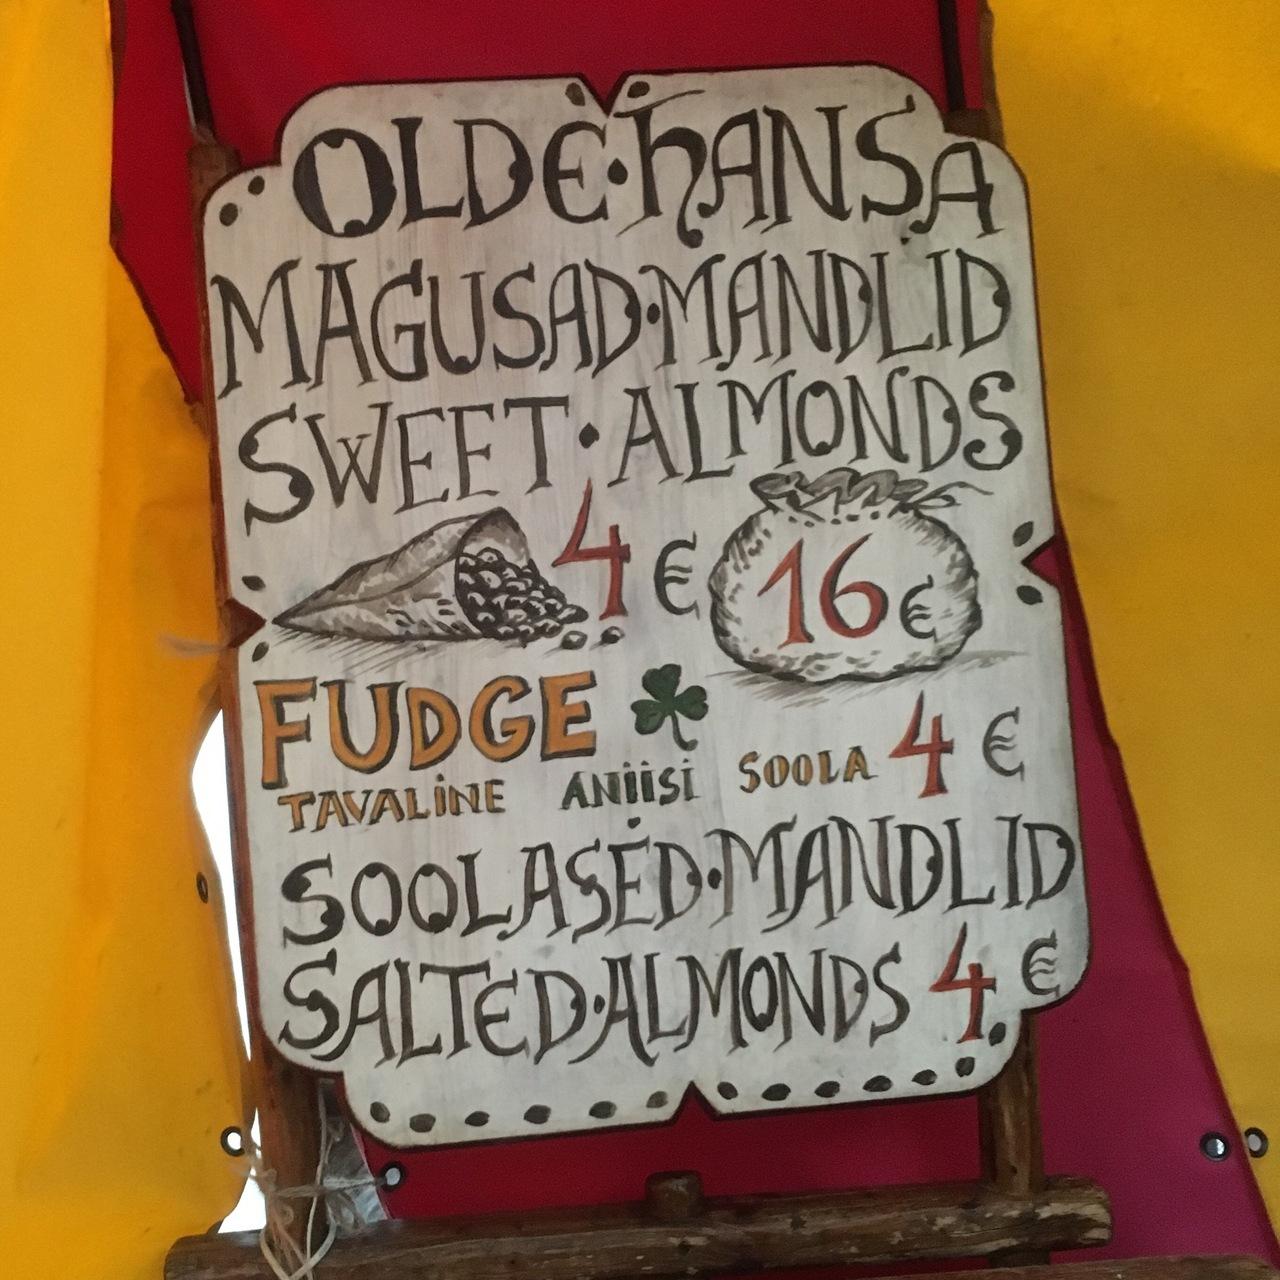 OLDE·HANSA
MAGUSAD·MANDLID
SWEET·ALMONDS
4 € 16 €
FUDGE
TAVALINE ANIISI SOOLA 4 €
SOOLASED·MANDLID
SALTED·ALMONDS 4 €